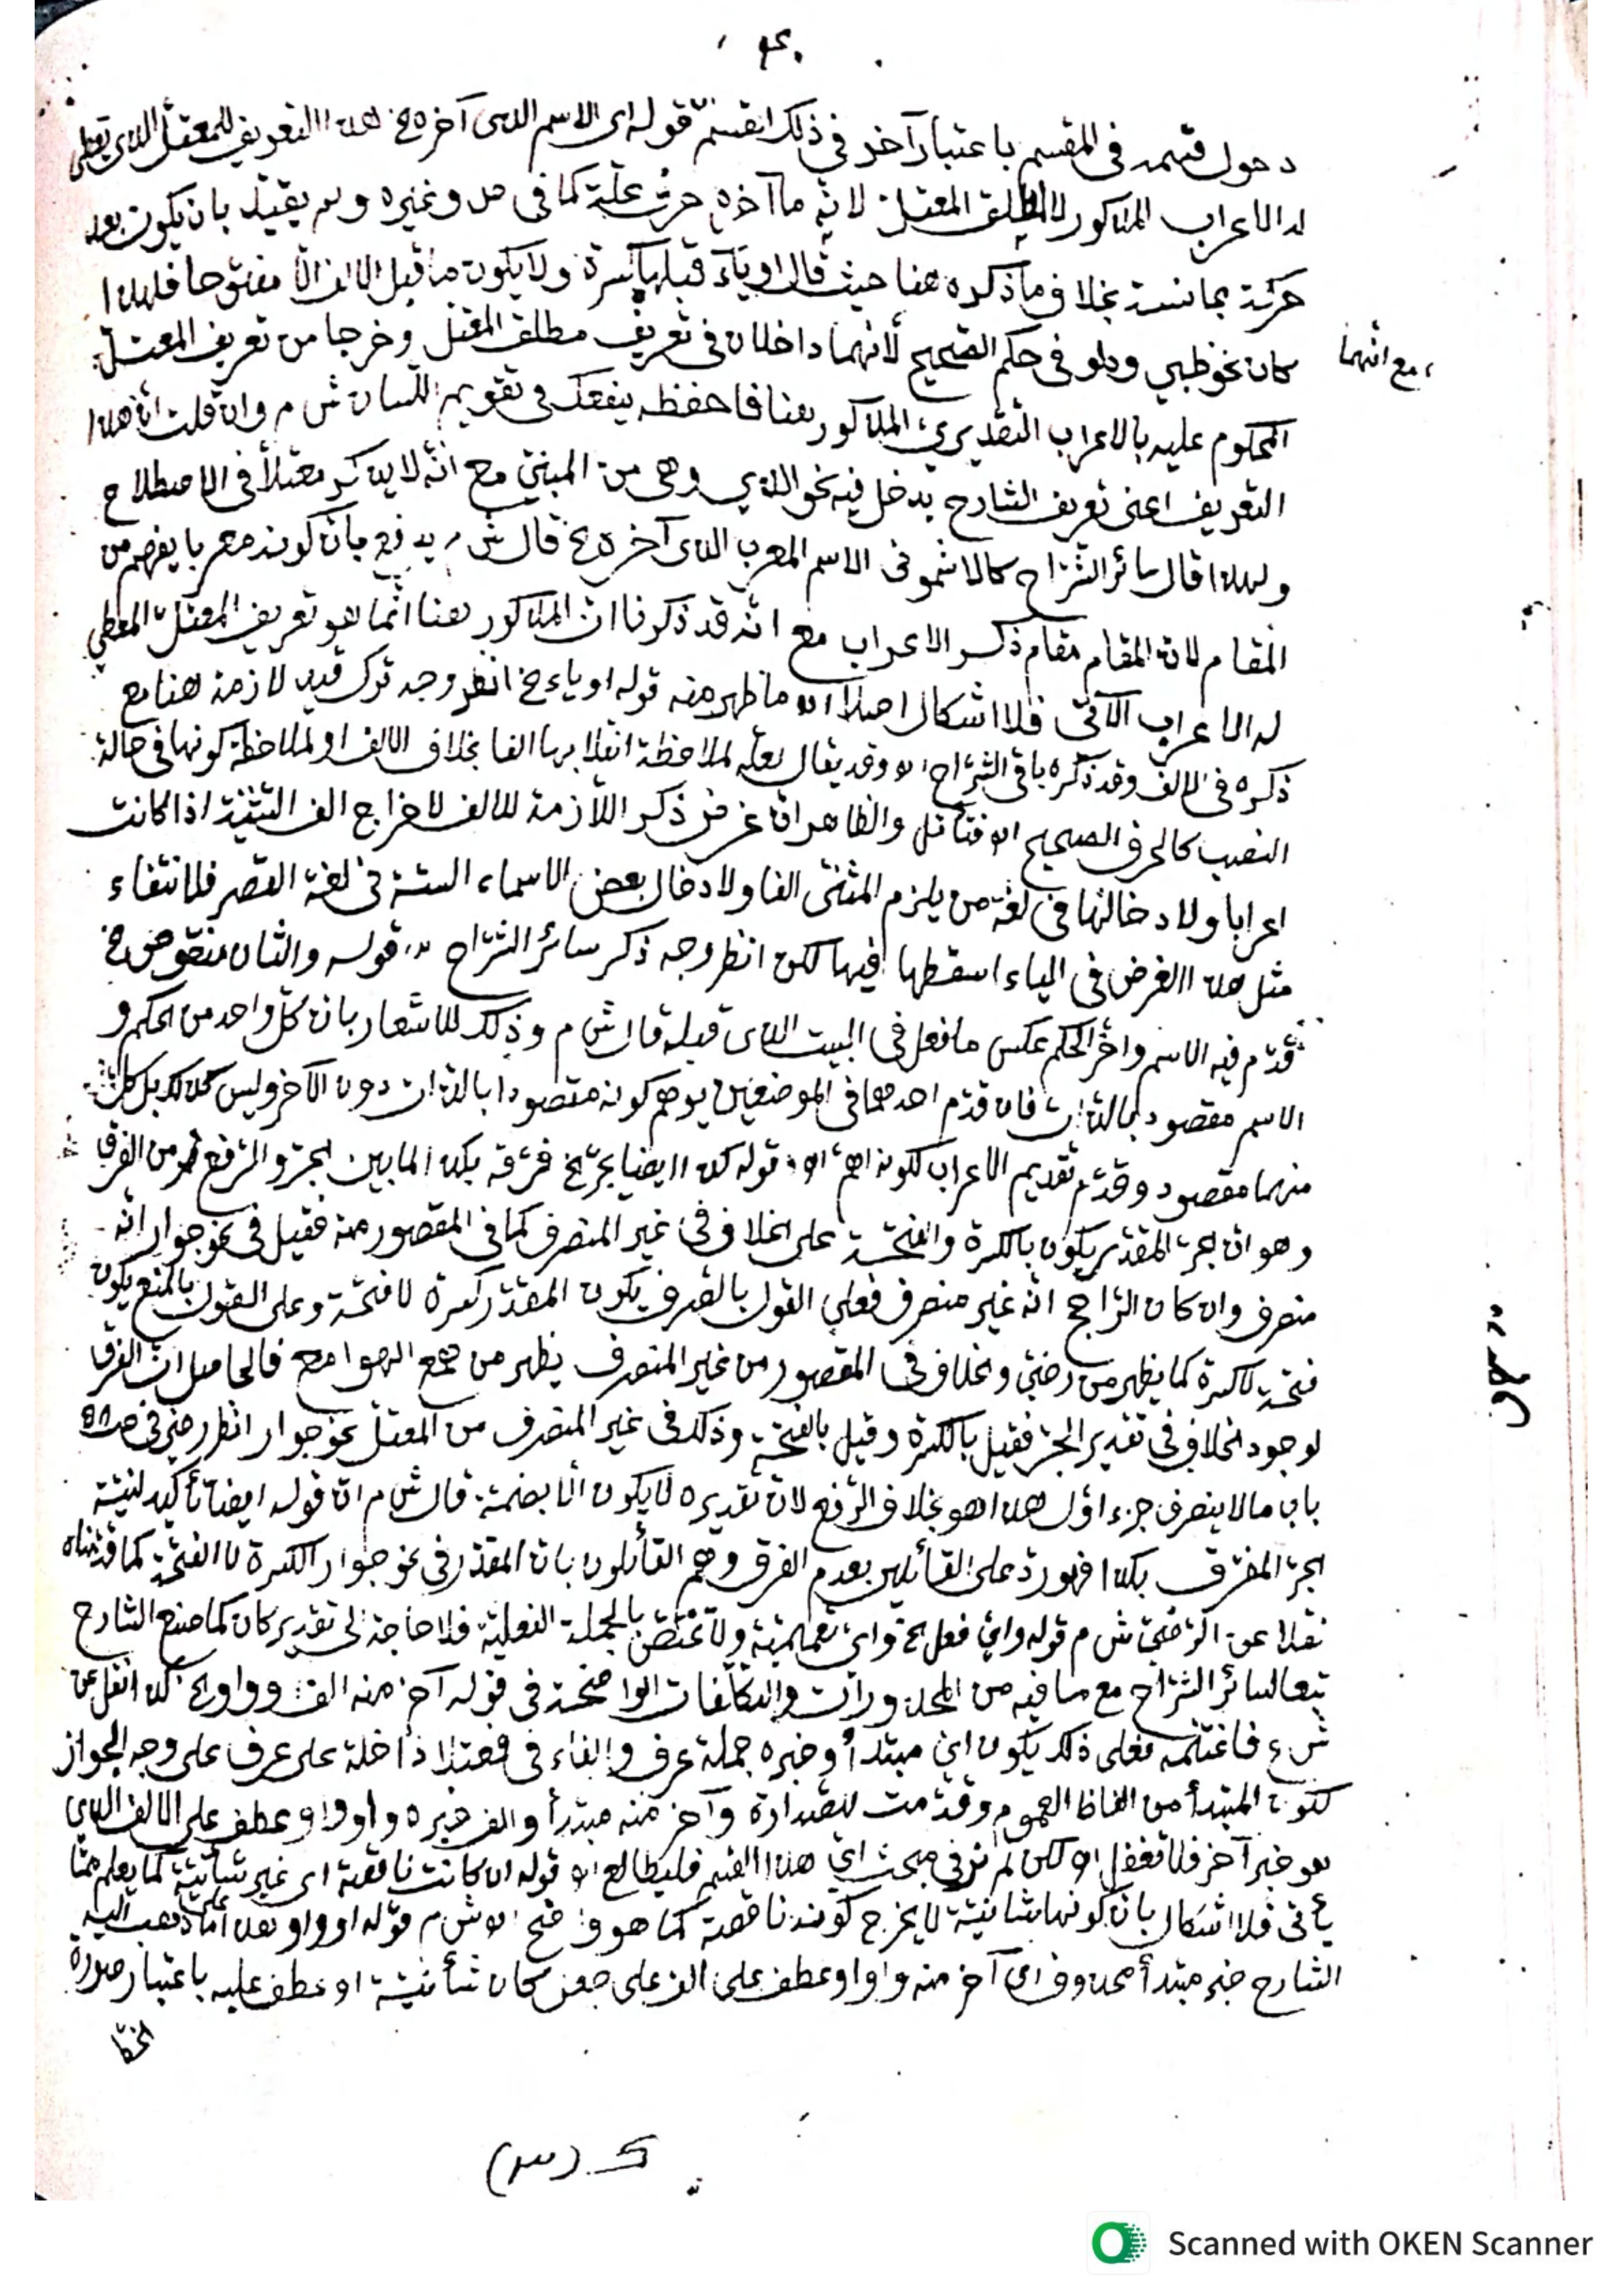 دخول قسمه في المقسم باعتبار آخر في ذلك التقسيم قوله اى الاسم الذى آخره الخ هذا التعريف للمعتل الذى يعطى
له الاعراب المذكور لا لمطلق المعتل لانه ما آخره حرف علة كما فى وغيره ولم يقيد بان يكون بعد
حركة مجانسة بخلاف ما ذكره هنا حيث قال او ياء قبلها كسرة ولا يكون ما قبل الالف الا مفتوحا فلهذا
كان نحو ظبي ودلو فى حكم الصحيح لانهما داخلان فى تعريف مطلق المعتل وخرجا من تعريف المعتل
، مع انهما
المحكوم عليه بالاعراب التقديري المذكور هنا فاحفظه ينفعك فى تقويم اللسان ش م وان قلت ان هذا
التعريف اعنى تعريف الشارح يدخل فيه نحو الذي وهى من المبني مع انه لا يذكر معتلا فى الاصطلاح
ولهذا قال سائر الشراح كالاشموني الاسم المعرب الذى آخره الخ قال ش م يدفع بان كونه معربا يفهم من
المقام لان المقام مقام ذكر الاعراب مع انه قد ذكرنا ان المذكور هنا انما هو تعريف المعتل المعطى
له الاعراب الآتى فلا اشكال اصلا اه ما ظهر منه قوله او ياء الخ انظر وجه ترك قيد لازمة هنا مع
ذكره فى الالف وقد ذكره باقى الشراح اه وقد يقال لعله لملاحظة انقلابها الفا بخلاف الالف او لملاحظة كونها فى حالة
النصب كالحرف الصحيح اه فتأمل والظاهر ان غرض ذكر اللازمة للالف لاخراج الف التثنية اذا كانت
اعرابا ولادخالها فى لغة من يلزم المثنى الفا ولادخال بعض الاسماء الستة فى لغة القصر فلانتفاء
مثل هذا الغرض فى الياء اسقطها فيها لكن انظر وجه ذكر سائر الشراح قوله والثان منقوص الخ
قدم فيه الاسم واخر الحكم عكس ما فعل فى البيت الذى قبله قال ش م وذلك للاشعار بان كل واحد من الحكم و
الاسم مقصود بالذات فان قدم احدهما فى الموضعين يوهم كونه مقصودا بالذات دون الآخر وليس كذلك بل كل
منهما مقصود وقدم تقديم الاعراب لكونه اهم اه قوله كذا ايضا يجر الخ فرقه بكذا لما بين الجر والرفع من الفرق
وهو ان الجر المقدر يكون بالكسرة والفتحة على الخلاف فى غير المنصرف كما فى المقصور منه فقيل فى نحو جوار انه
منصرف وان كان الراجح انه غير منصرف فعلى القول بالصرف يكون المقدر كسرة لا فتحة وعلى القول بالمنع يكون
فتحة لا كسرة كما يظهر من رضي والخلاف فى المقصور من غير المنصرف يظهر من همع الهوامع فالحاصل ان الفرق
لوجود الخلاف فى تقدير الجر فقيل بالكسرة وقيل بالفتحة وذلك فى غير المنصرف من المعتل نحو جوار انظر رضي فى
باب ما لا ينصرف جزء اول هذا هو بخلاف الرفع لان تقديره لا يكون الا بضمة قال ش م ان قوله ايضا تأكيد لنية
الجر المفرق بكذا فهو رد على القائلين بعدم الفرق وهم القائلون بان المقدر فى نحو جوار الكسرة لا الفتحة كما قدمناه
نقلا عن الرضي ش م قوله واي فعل الخ واي تعميمية ولا تختص بالجملة الفعلية فلا حاجة الى تقدير كان كما صنع الشارح
تبعا لسائر الشراح مع ما فيه من المحذورات والتكلفات الواضحة فى قوله آخر منه الف وواو الخ كذا نقل عن
ش ء فاغتنمه فعلى ذلك يكون اي مبتدأ وخبره جملة عرف والفاء فى فمعتلا داخلة على عرف على وجه الجواز
لكون المبتدأ من الفاظ العموم وقدمت للصدارة وآخر منه مبتدأ والف خبره واو واو عطف على الالف الذي
هو خبر آخر فلا تغفل اه لكن لم نر فى مبحث اي هذا القسم فليطالع اه قوله ان كانت ناقصة اى غير شأنية كما يعلم مما
يأتى فلا اشكال بان كونها شانية لا يخرج كونه ناقصة كما هو واضح اه ش م قوله او واو هذا على ما ذهب اليه
الشارح خبر مبتدأ محذوف اى آخر منه واو او عطف على الف على جعل كان شأنية او عطف عليه باعتبار صورة
الخط